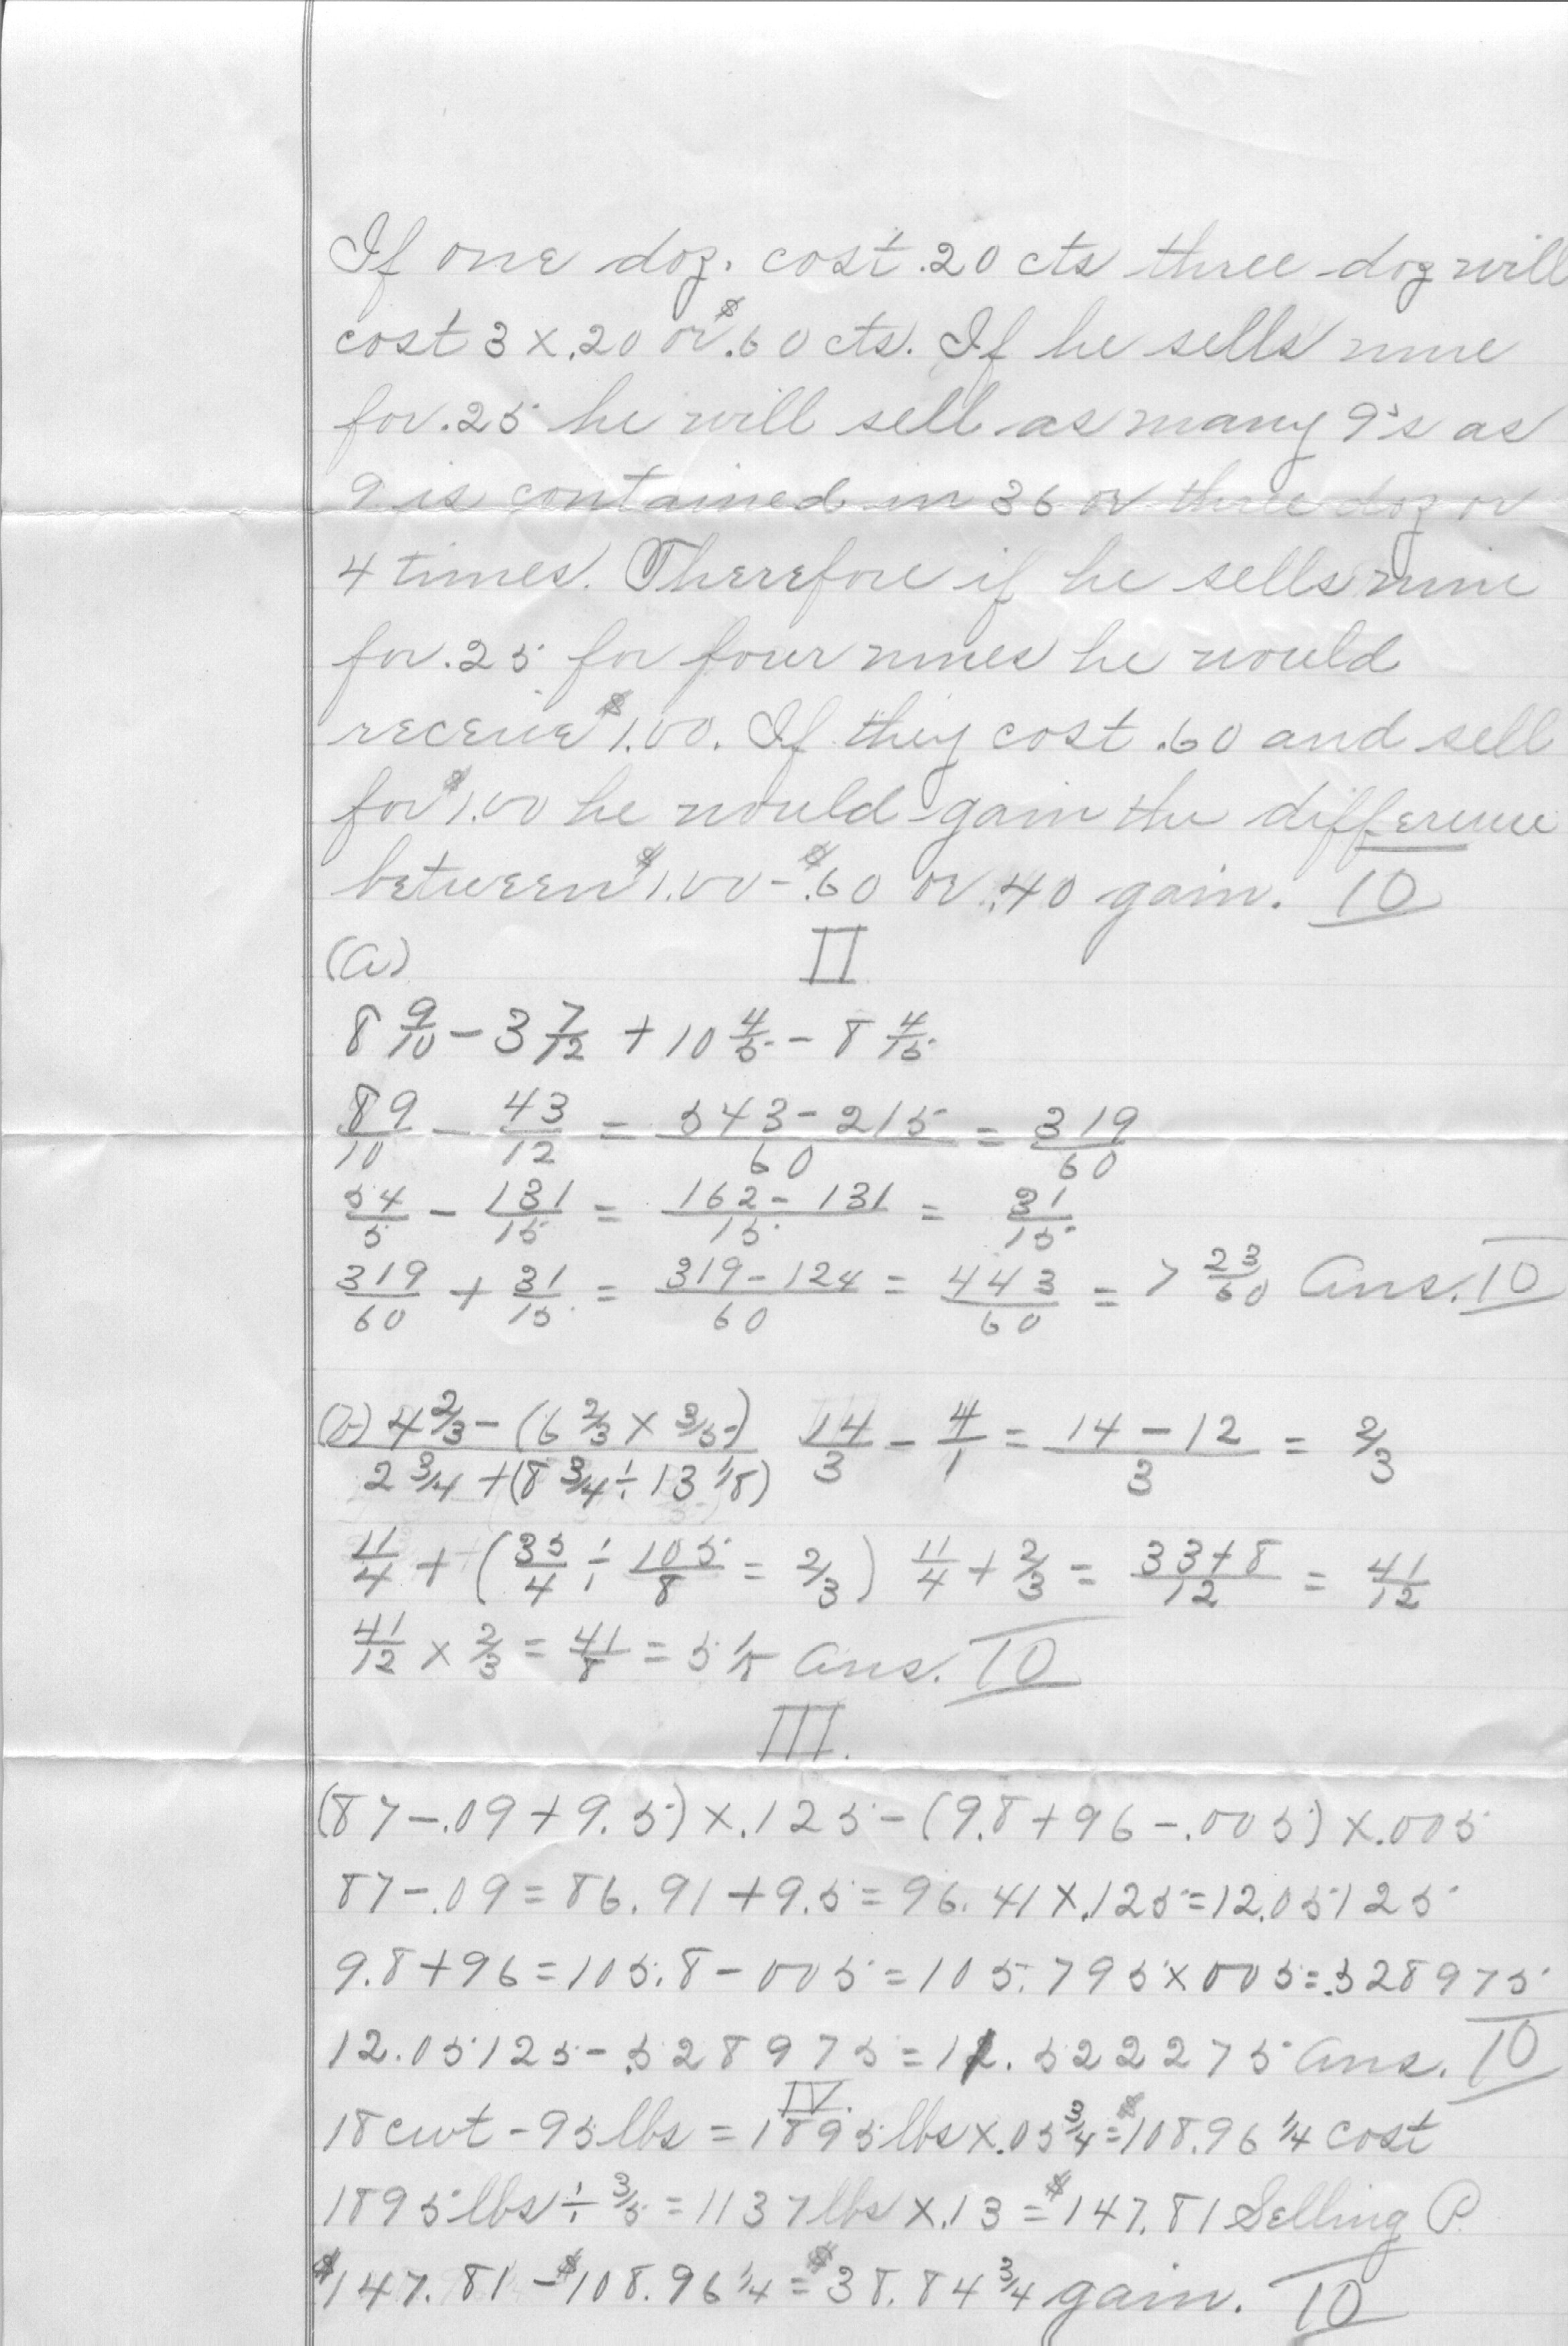 If one doz. cost .20 cts three doz will
cost 3 x .20 or $.60 cts. If he sells nine
for .25 he will sell as many 9's as
9 is contained in 36 or three doz or
4 times. Therefore if he sells nine
for .25 for four nines he would
receive $1.00. If they cost .60 and sell
for $1.00 he would gain the difference
between $1.00 - $.60 or .40 gain. 10
(a) II
8 9/10 - 3 7/12 + 10 4/5 - 8 4/15
89/10 - 43/12 = 543 - 215/60 = 319/60
54/5 - 131/15 = 162 - 131/15 = 31/15
319/60 + 31/15 = 319 - 124/60 = 443/60 = 7 23/60 Ans. 10
(b) 4 2/3 - (6 2/3 x 3/5) / 2 3/4 + (8 3/4 ÷ 13 1/8) 14/3 - 4/1 = 14 - 12/3 = 2/3
11/4 + (35/4 ÷ 105/8 = 2/3) 11/4 + 2/3 = 33 + 8/12 = 41/12
41/12 x 2/3 = 41/8 = 5 1/8 Ans. 10
III.
(87 - .09 + 9.5) x .125 - (9.8 + 96 - .005) x .005
87 - .09 = 86.91 + 9.5 = 96.41 x .125 = 12.05125
9.8 + 96 = 105.8 - 005 = 105.795 x 005 = .528975
12.05125 - .528975 = 11.522275 Ans. 10
IV.
18 cwt - 95 lbs = 1895 lbs x .05 3/4 = $108.96 1/4 cost
1895 lbs ÷ 3/5 = 1137 lbs x .13 = $147.81 Selling P.
$147.81 - $108.96 1/4 = $38.84 3/4 gain. 10